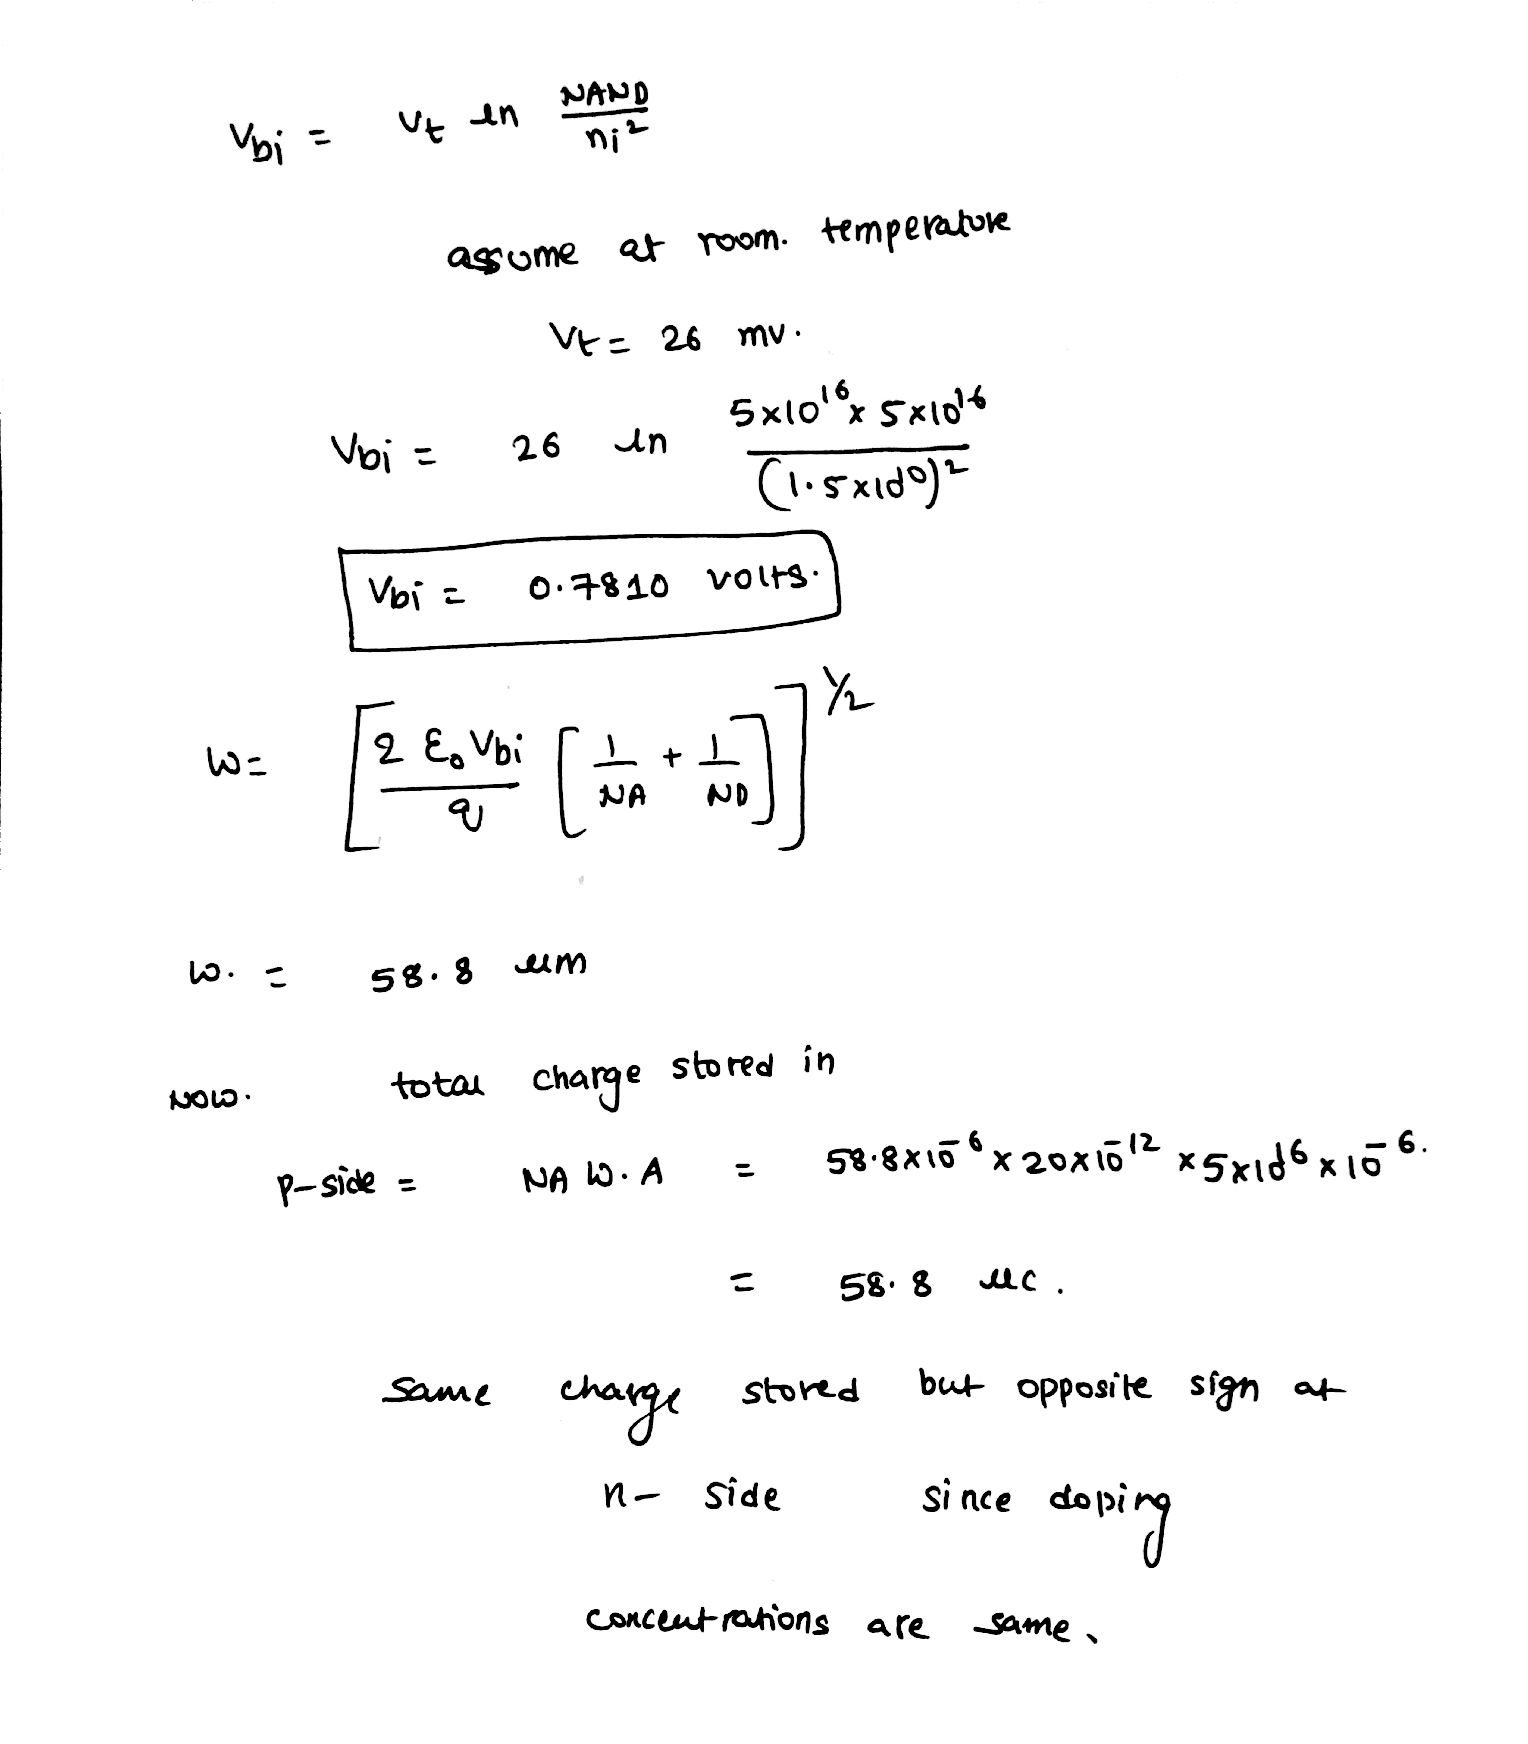 Vbi = Vt ln NAND / ni²
assume at room. temperature
Vt = 26 mv.
Vbi = 26 ln 5x10¹⁶ x 5x10¹⁶ / (1.5x10¹⁰)²
Vbi = 0.7810 volts.
W = [ 2 ε₀ Vbi / q [ 1/NA + 1/ND ] ]^1/2
W. = 58.8 um
NOW. total charge stored in
P-side = NA W.A = 58.8x10⁻⁶ x 20x10⁻¹² x 5x10¹⁶ x 10⁻⁶.
= 58.8 uc.
same charge stored but opposite sign at
n- side since doping
concentrations are same.